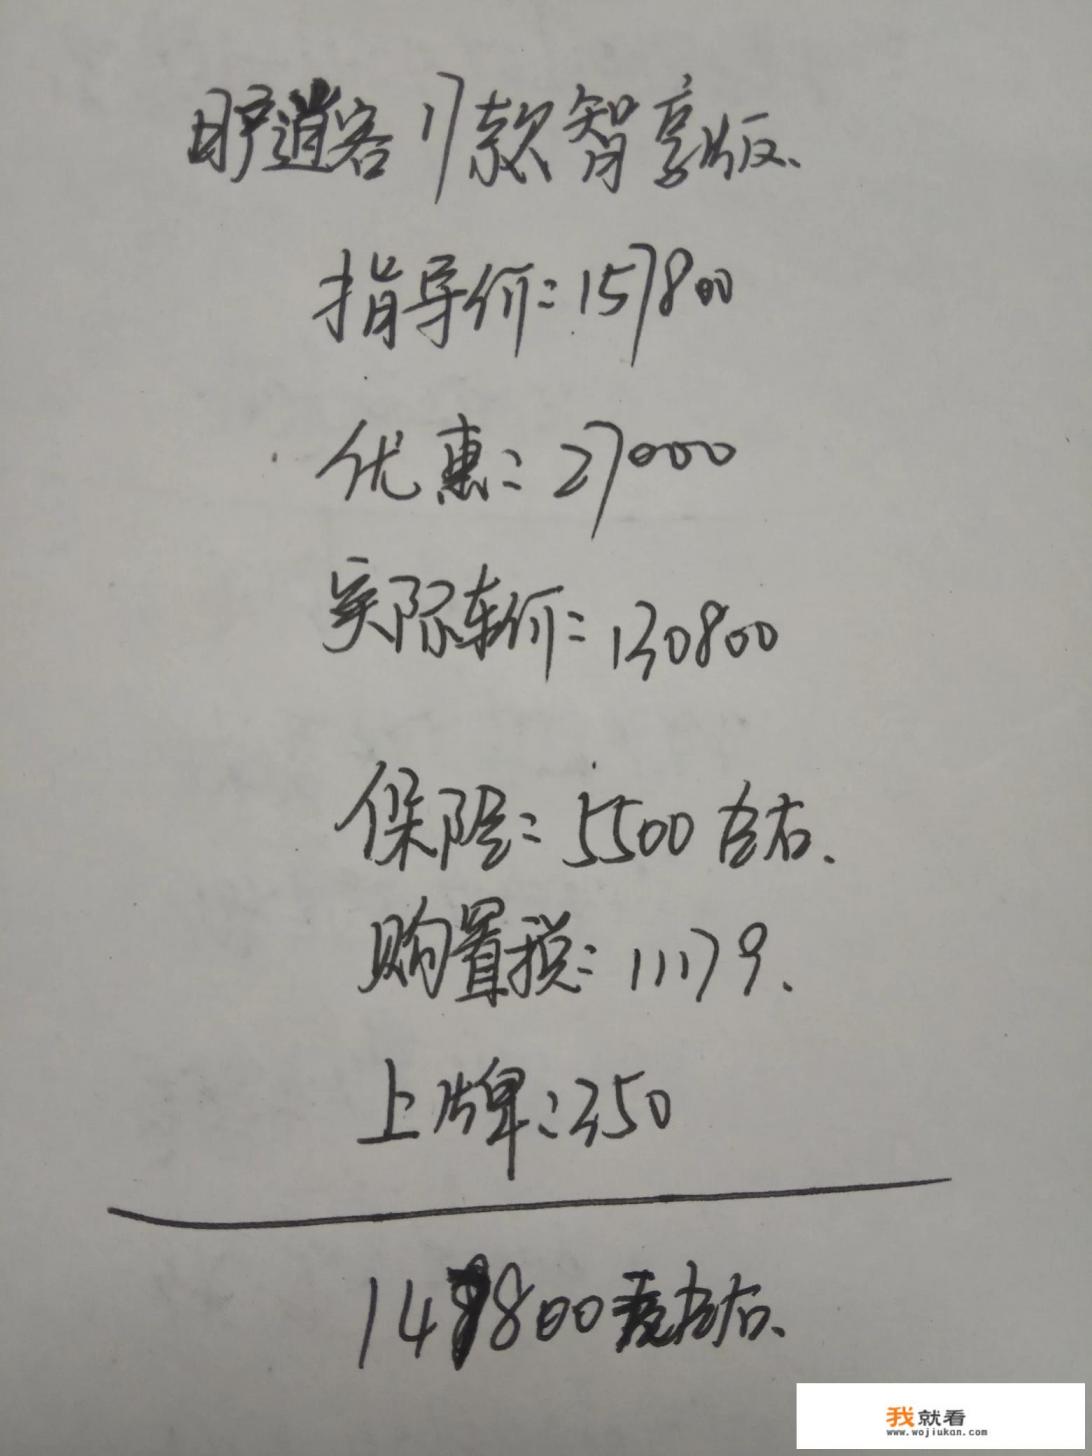 逍客17款智享版.
指导价:157800
优惠:27000
实际车价:130800
保险:5500左右.
购置税:11179.
上牌:350
14 800 左右.
我就看
www.wojiukan.com